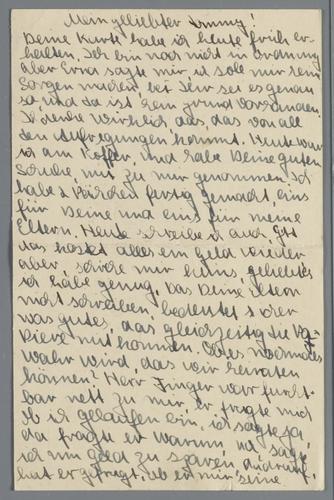 Mein geliebter Jimmy!
Deine Karte habe ich heute früh er-
halten. Ich bin noch nicht in Ordnung
aber Erna sagte mir, ich solle mir kein
Sorgen machen, bei Ihr sei es genau
so, und da ist kein Grund vorhanden.
Ich denke wirklich das, das von all
den Aufregungen kommt. Heute war
ich am Koffer, und habe Deine guten
Schuhe, mit zu mir genommen. Ich
habe 2 Päckchen fertig gemacht, eins
für Deine und eins für meine
Eltern. Heute schreibe ich auch
das kostet alles ein Geld wieder
aber, schicke mir keins geliebter
ich habe genug. Das Deine Eltern
nicht schreiben, bedeutet sicher
was gutes, das gleichzeitig die Pa-
piere mitkommen. Ob es nochmal
wahr wird, das wir heiraten
können? Herr Finger war furcht-
bar nett zu mir, er fragte mich
ob ich gelaufen bin, ich sagte ja
da fragte er warum, na sage
ich um Geld zu sparen, darauf
hat er gefragt, ob er mir seine